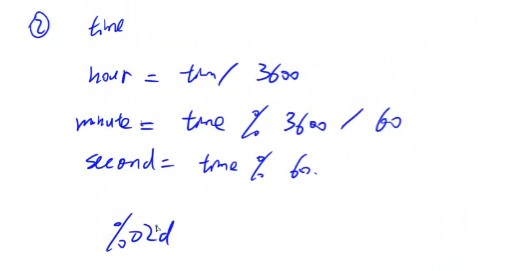 ② time
hour = tim / 3600
minute = time % 3600 / 60
second = time % 60.
%02d